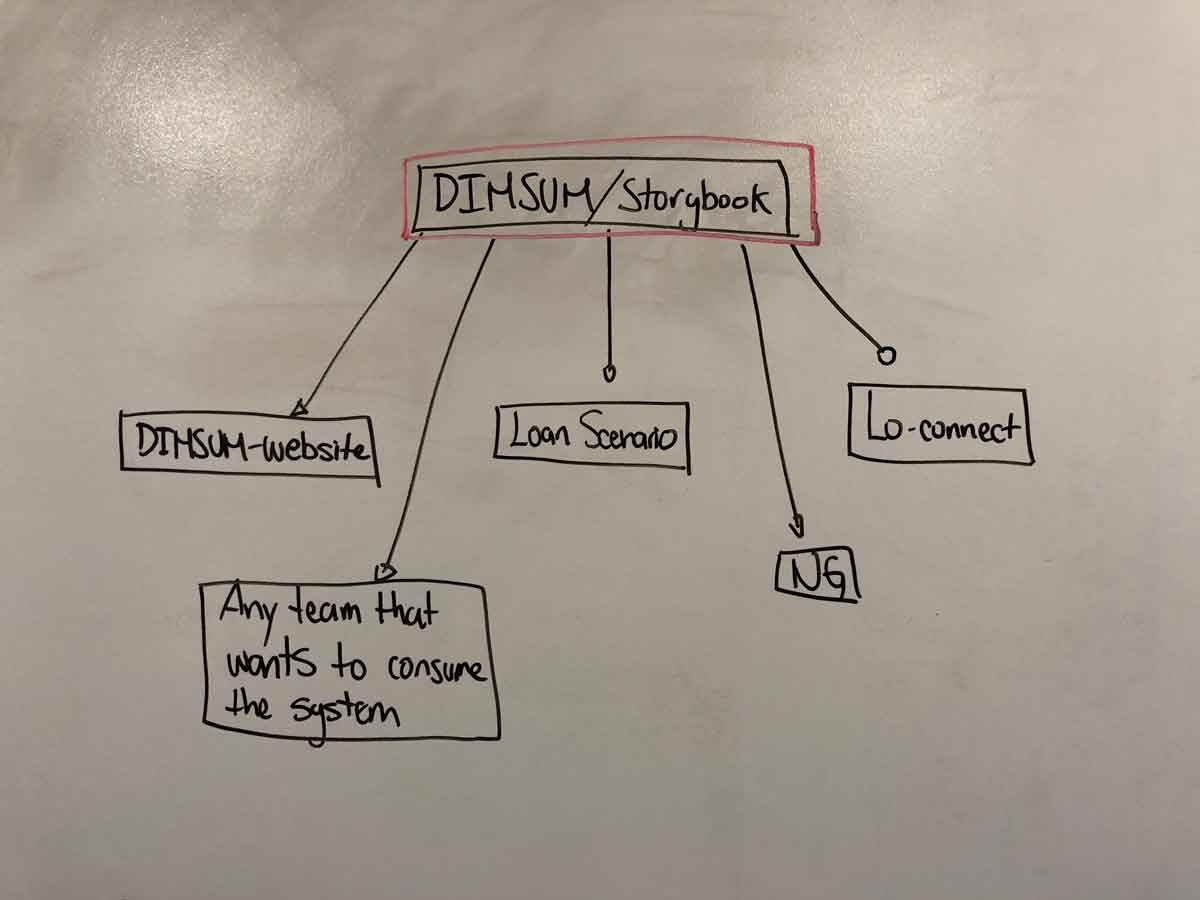 DIMSUM/Storybook
DIMSUM-website
Loan Scenario
Lo-connect
NG
Any team that
wants to consume
the system